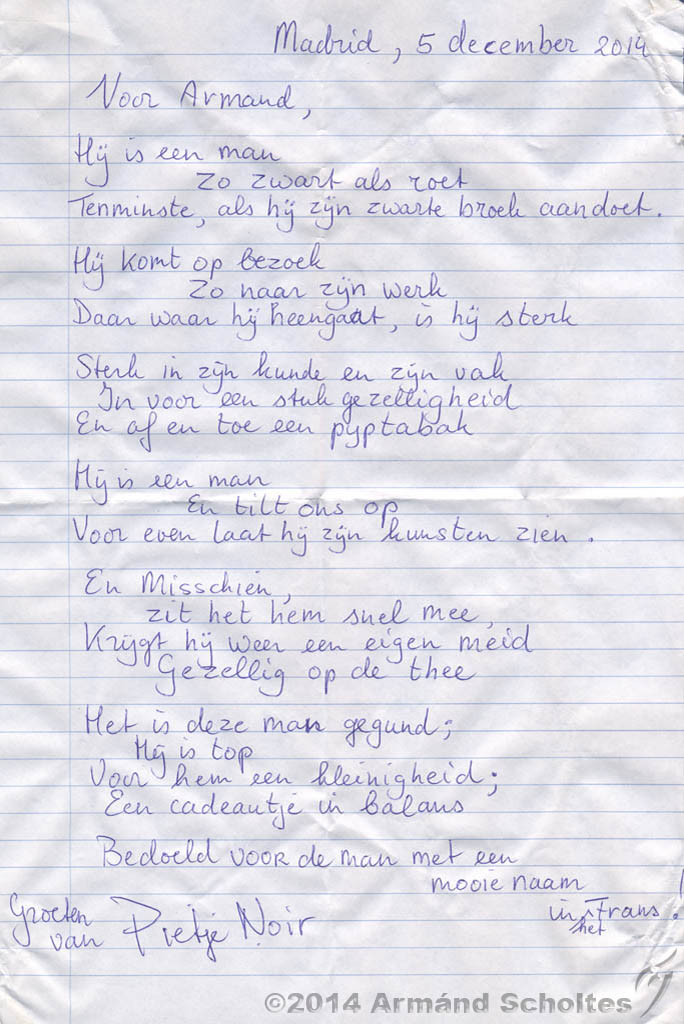 Madrid, 5 december 2014
Voor Armand,
Hij is een man
Zo zwart als roet
Tenminste, als hij zijn zwarte broek aandoet.
Hij komt op bezoek
Zo naar zijn werk
Daar waar hij heengaat, is hij sterk
Sterk in zijn kunde en zijn vak
In voor een stuk gezelligheid
En af en toe een pyptabak
Hij is een man
En tilt ons op
Voor even laat hij zijn kunsten zien.
En Misschien,
zit het hem snel mee,
Krijgt hij weer een eigen meid
Gezellig op de thee
Het is deze man gegund;
Hij is top
Voor hem een kleinigheid;
Een cadeautje in balans
Bedoeld voor de man met een
mooie naam
in het Frans!
Groeten
van Pietje Noir
©2014 Armánd Scholtes